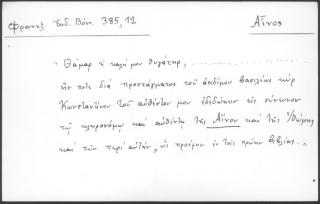 Φραντζ Ἐκδ. Βόν. 385,12
Αἶνος
"Θάμαρ ἡ καλή μου θυγάτηρ, ..............
ἣν ποτε διὰ προστάγματος τοῦ ἀοιδίμου βασιλέως κὺρ
Κωνσταντίνου τοῦ αὐθέντου μου ἐδεδώκειν εἰς σύνευνον
τῷ κληρονόμῳ καὶ αὐθέντῃ τῆς Αἴνου καὶ τῆς
καὶ τῶν περὶ αὐτὰν, ὡς προεῖπον ἐν τοῖς πρώην βιβλίοις."